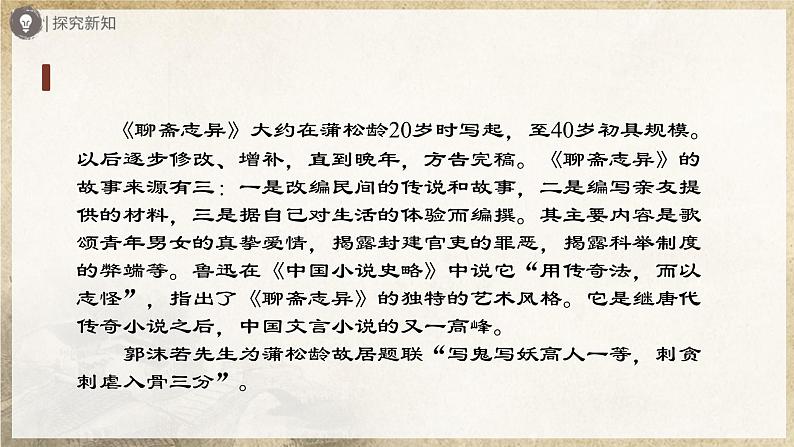 探究新知
《聊斋志异》大约在蒲松龄20岁时写起，至40岁初具规模。
以后逐步修改、增补，直到晚年，方告完稿。《聊斋志异》的
故事来源有三：一是改编民间的传说和故事，二是编写亲友提
供的材料，三是据自己对生活的体验而编撰。其主要内容是歌
颂青年男女的真挚爱情，揭露封建官吏的罪恶，揭露科举制度
的弊端等。鲁迅在《中国小说史略》中说它“用传奇法，而以
志怪”，指出了《聊斋志异》的独特的艺术风格。它是继唐代
传奇小说之后，中国文言小说的又一高峰。
郭沫若先生为蒲松龄故居题联“写鬼写妖高人一等，刺贪
刺虐入骨三分”。